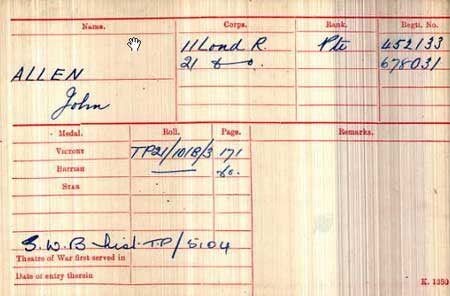 Name. Corps. Rank. Regtl. No.
11 Lond R. Pte 452133
ALLEN 21 — do — . 678031
John
Medal. Roll. Page. Remarks.
VICTORY TP21/101B/3 171
BRITISH do.
STAR
S.W.B List TP/5104
Theatre of War first served in
Date of entry therein
K. 1380